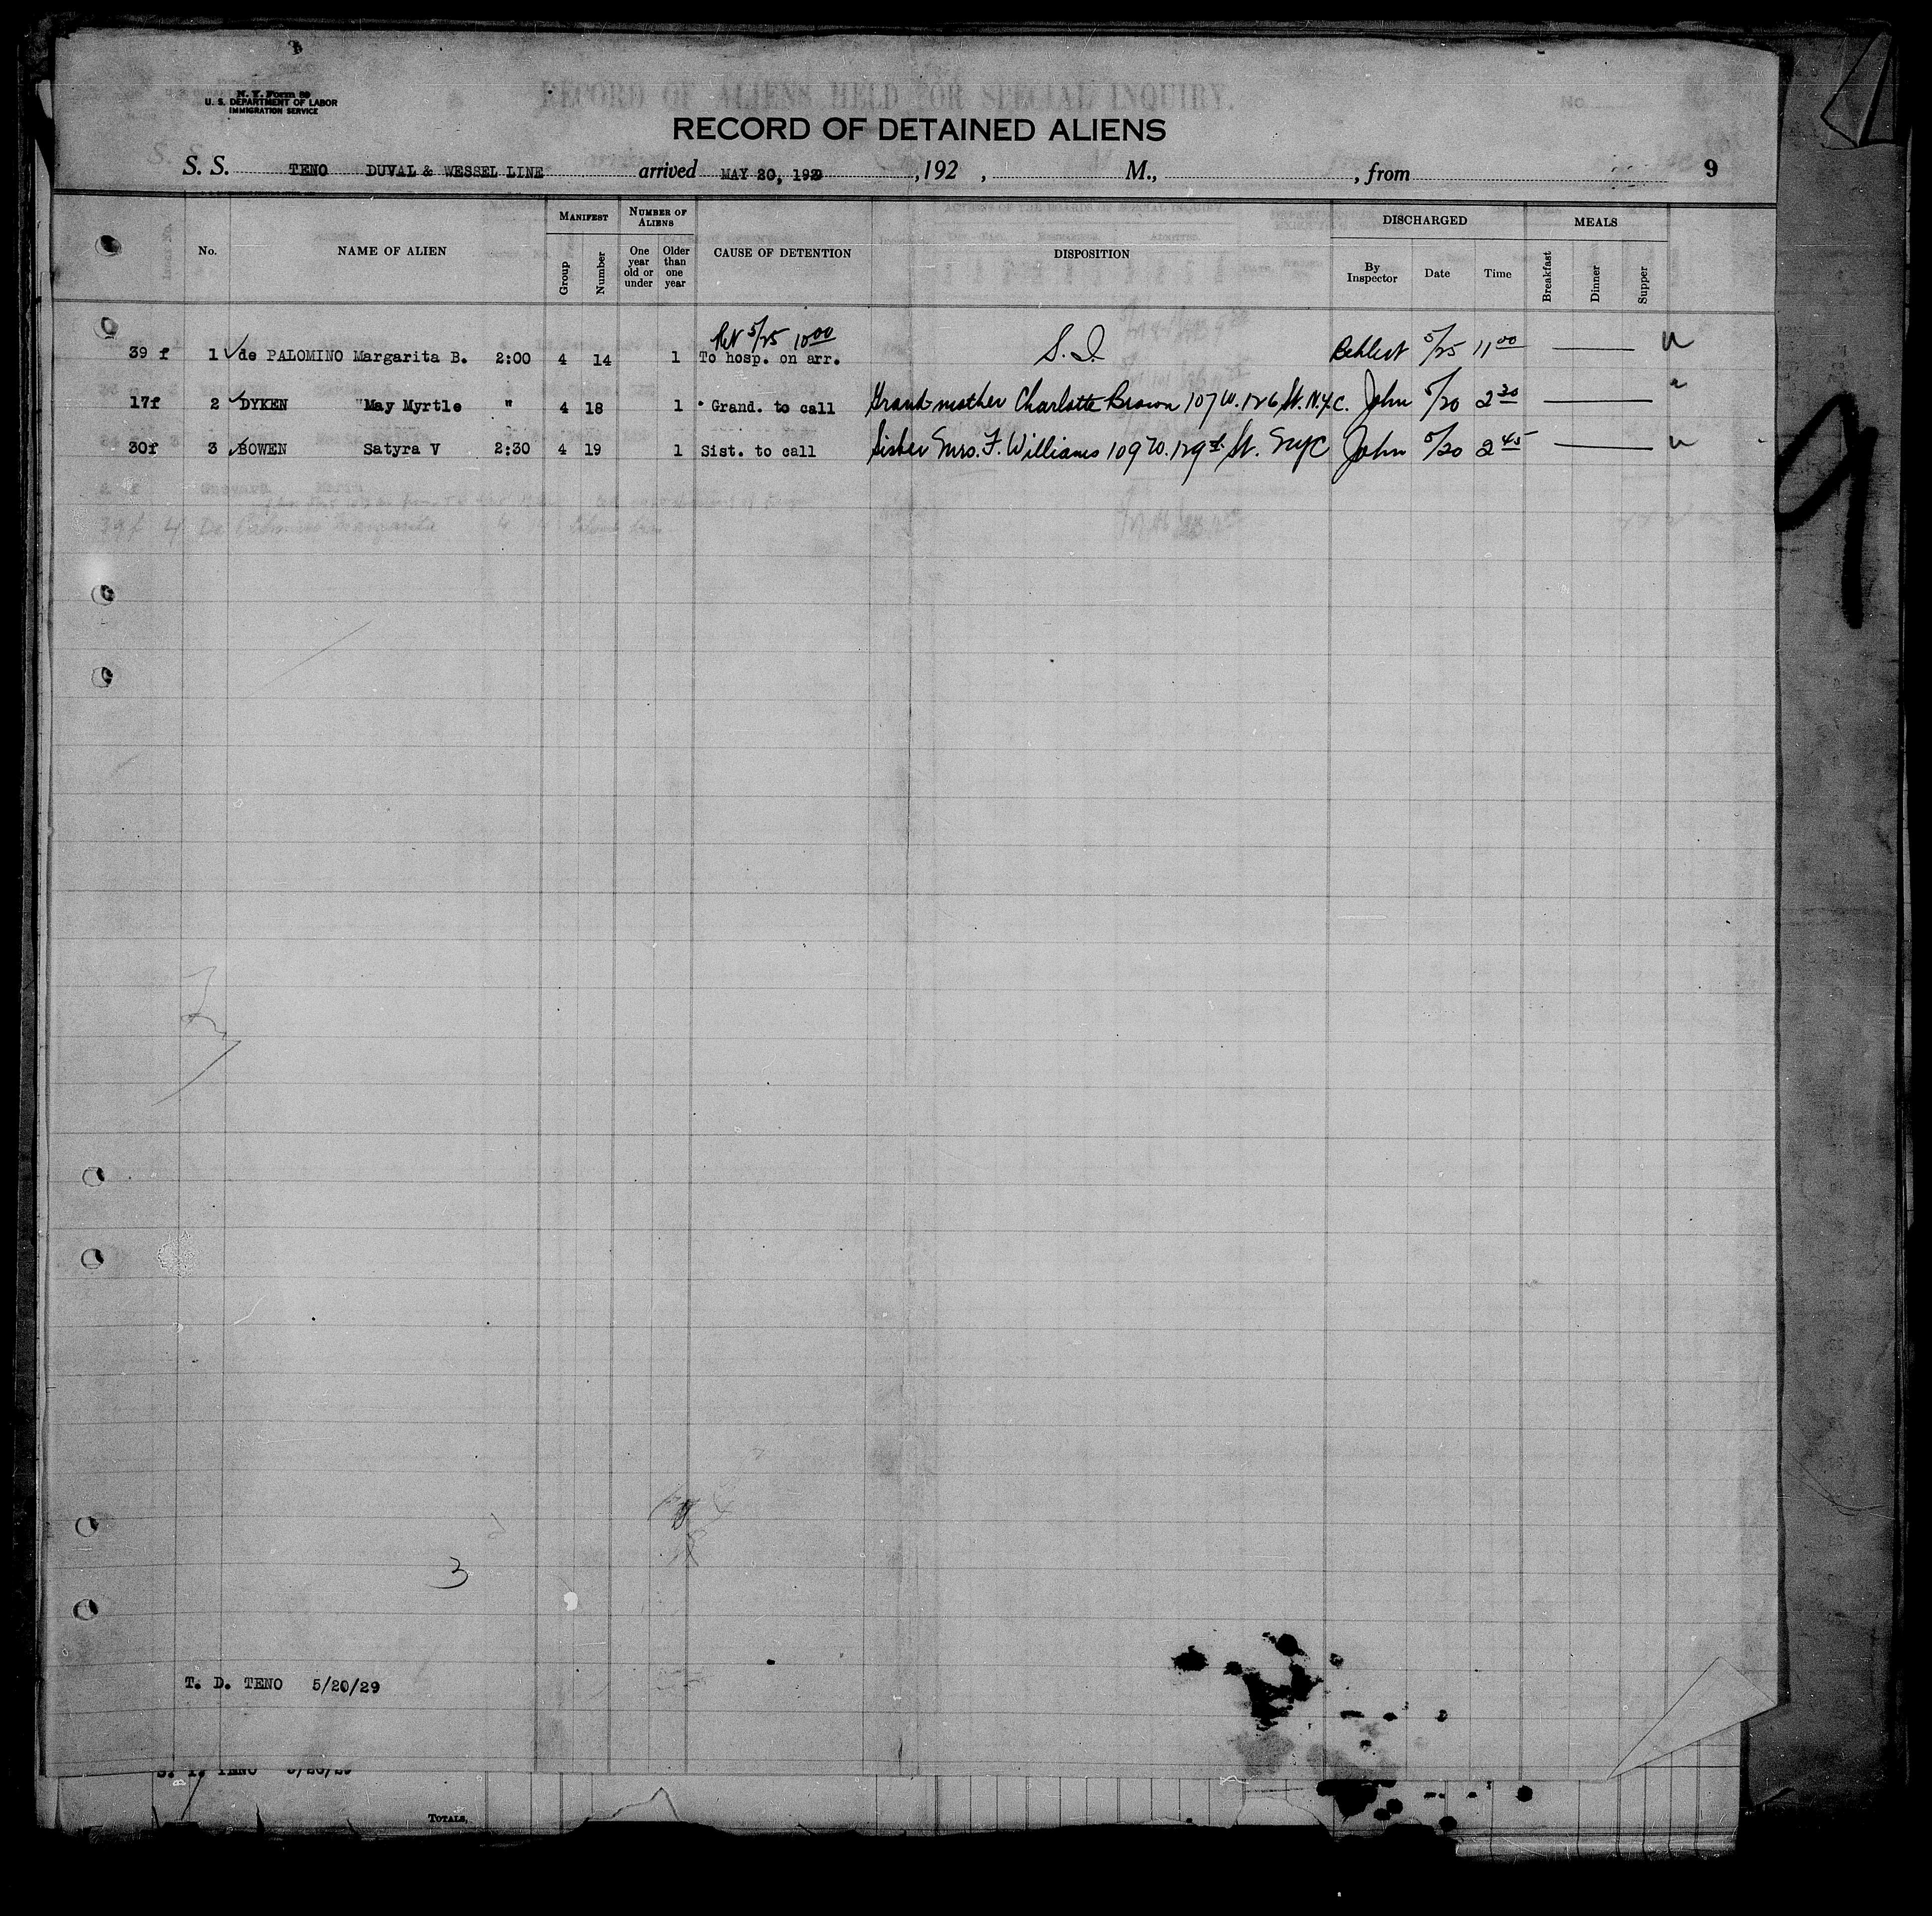 N. Y. Form 89
U. S. DEPARTMENT OF LABOR
IMMIGRATION SERVICE
RECORD OF ALIENS HELD FOR SPECIAL INQUIRY.
No.
RECORD OF DETAINED ALIENS
S. S. TENO DUVAL & WESSEL LINE arrived MAY 20, 1929 , 192 , M., , from 9
No. NAME OF ALIEN MANIFEST Group Number NUMBER OF ALIENS One year old or under Older than one year CAUSE OF DETENTION DISPOSITION DISCHARGED By Inspector Date Time MEALS Breakfast Dinner Supper
5/25 10 00
39 f 1 de PALOMINO Margarita B. 2:00 4 14 1 To hosp. on arr. S. I. 5/25 11 00
17f 2 DYKEN "May Myrtle " 4 18 1 " Grand. to call Grand-mother Charlotte Brown 107 W. 126 St. N.Y.C. John 5/20 2 30
30f 3 BOWEN Satyra V 2:30 4 19 1 Sist. to call Sister Mrs. F. Williams 109 W. 129 St. NYC John 5/20 2 45
39f 4 De Palomino Margarita
3
T. D. TENO 5/20/29
S. I. TENO 5/20/29
TOTALS,
9